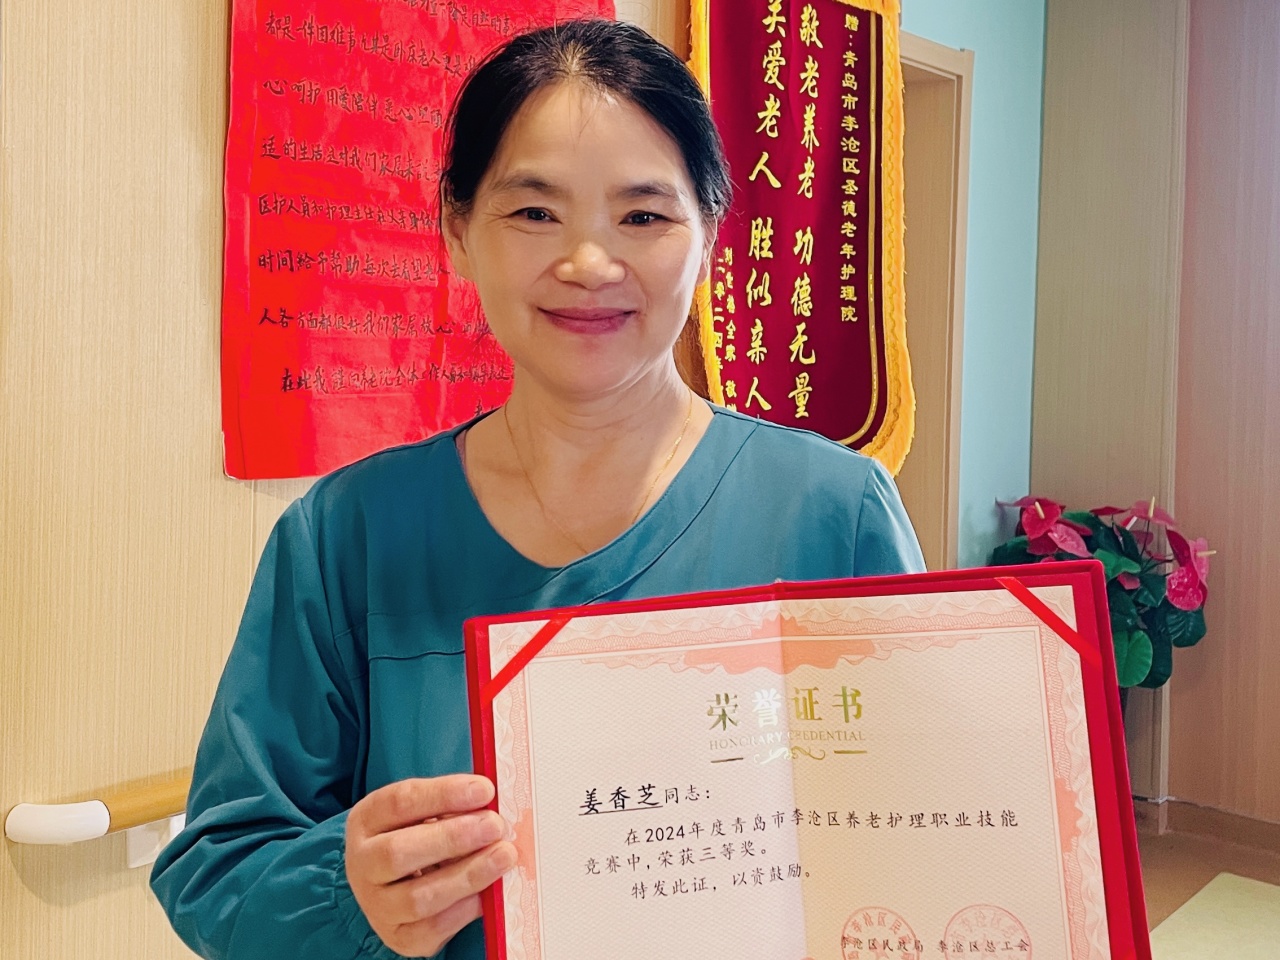 都是一件困难事尤其是卧床老人更是
心呵护用爱陪伴悉心照顾
适的生活这对我们家属来说
医护人员和护理主任在父亲身体
时间给予帮助每次去看望老人
人各方面都很好我们家属放心
在此我谨向老院全体工作人员
赠：青岛市李沧区圣德老年护理院
敬老养老 功德无量
关爱老人 胜似亲人
荣誉证书
HONORARY CREDENTIAL
姜香芝同志：
在2024年度青岛市李沧区养老护理职业技能
竞赛中，荣获三等奖。
特发此证，以资鼓励。
李沧区民政局 李沧区总工会